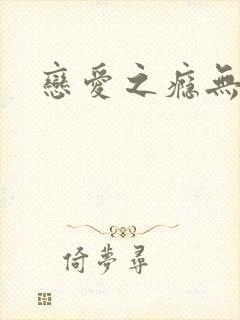 戀愛之瘾無
倚夢尋